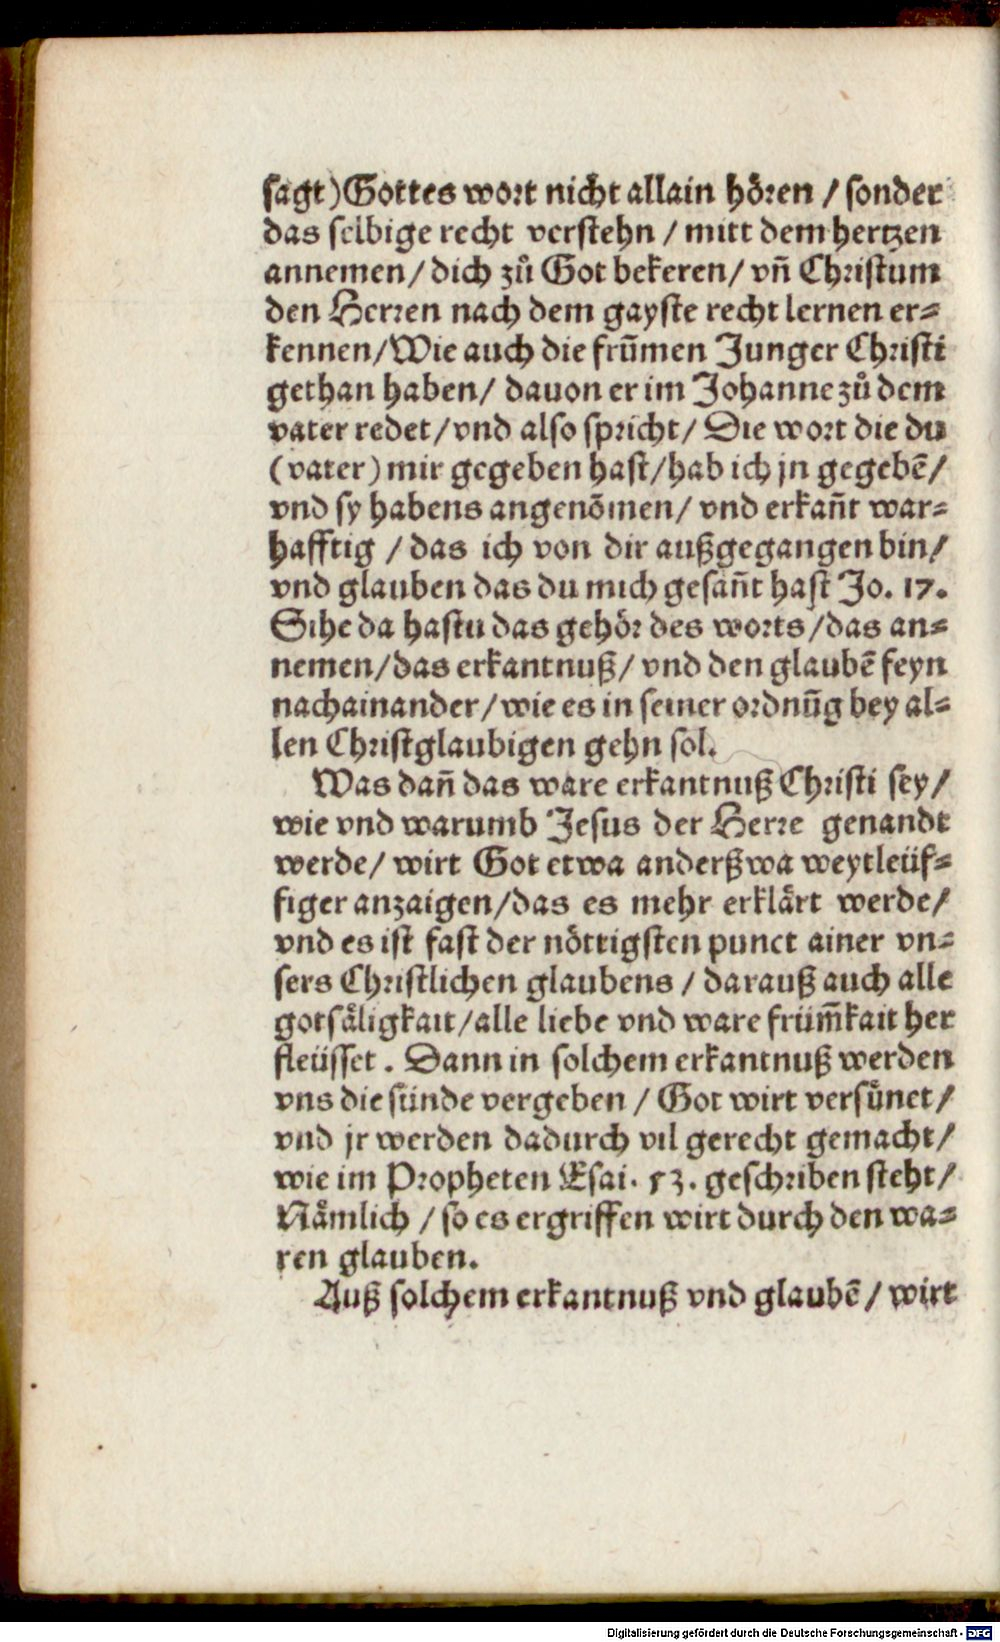 sagt) Gottes wort nicht allain hören / sonder
das selbige recht verstehn / mitt dem hertzen
annemen / dich zů Got bekeren / vn̄ Christum
den Herren nach dem gayste recht lernen er⸗
kennen / Wie auch die frūmen Junger Christi
gethan haben / dauon er im Johanne zů dem
vater redet / vnd also spricht / Die wort die du
(vater) mir gegeben hast / hab ich jn gegebē /
vnd sy habens angenōmen / vnd erkan̄t war⸗
hafftig / das ich von dir außgegangen bin /
vnd glauben das du mich gesan̄t hast Jo. 17.
Sihe da hastu das gehör des worts / das an⸗
nemen / das erkantnuß / vnd den glaubē feyn
nachainander / wie es in seiner ordnūg bey al⸗
len Christglaubigen gehn sol.
Was dan̄ das ware erkantnuß Christi sey /
wie vnd warumb Jesus der Herre genandt
werde / wirt Got etwa anderßwa weytleüf⸗
figer anzaigen / das es mehr erklärt werde /
vnd es ist fast der nöttigsten punct ainer vn⸗
sers Christlichen glaubens / darauß auch alle
gotsäligkait / alle liebe vnd ware früm̄kait her
fleüsset. Dann in solchem erkantnuß werden
vns die sünde vergeben / Got wirt versünet /
vnd jr werden dadurch vil gerecht gemacht /
wie im Propheten Esai. 53. geschriben steht /
Nämlich / so es ergriffen wirt durch den wa⸗
ren glauben.
Auß solchem erkantnuß vnd glaubē / wirt
Digitalisierung gefördert durch die Deutsche Forschungsgemeinschaft - DFG